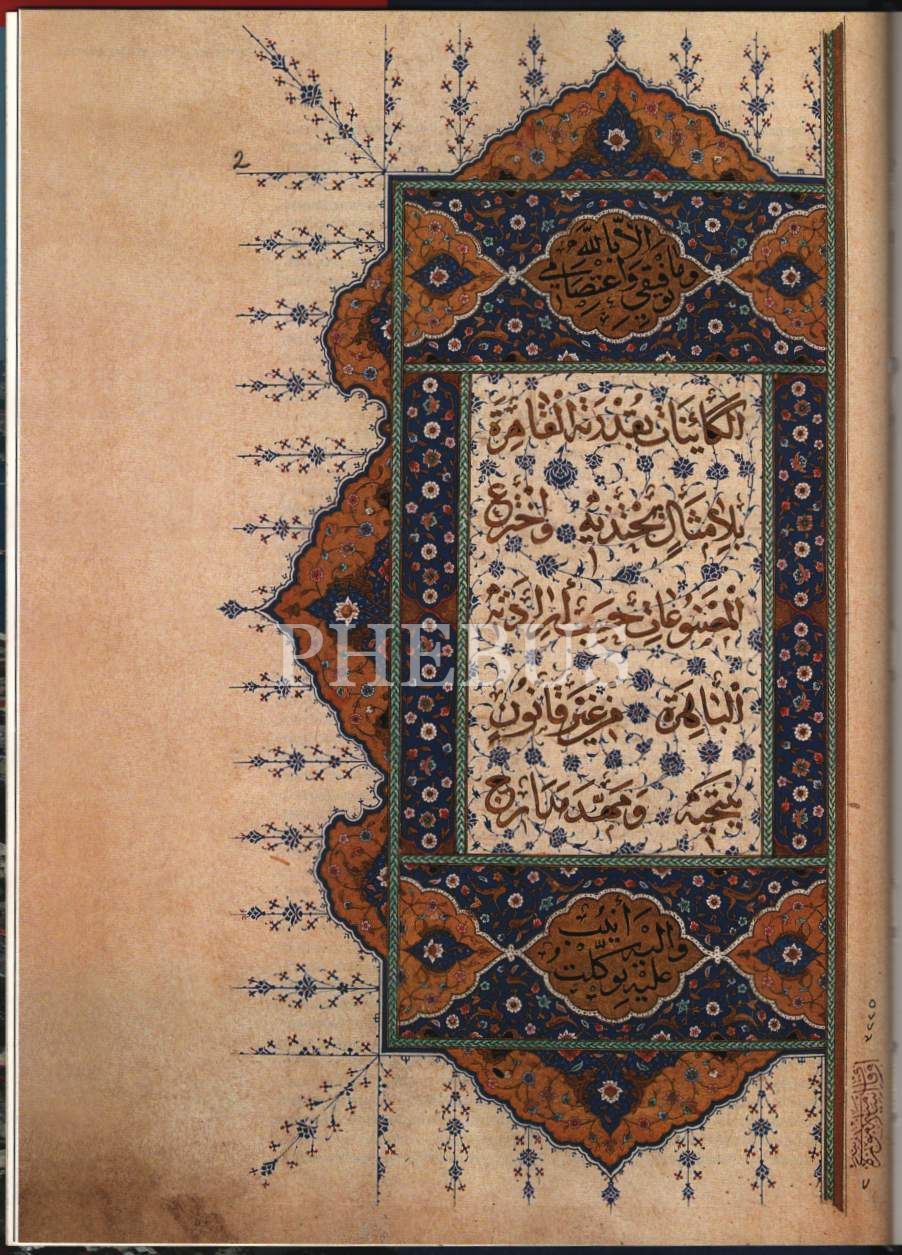 2
وما توفيقي واعتصامي
الا بالله
الكائنات بقدرته القاهرة
بلا مثال يحتذيه واخترع
المصنوعات حسب إرادته
PHEBUS
الباهرة من غير قانون
ينتحيه ومهد مدارج
عليه توكلت
وإليه أنيب